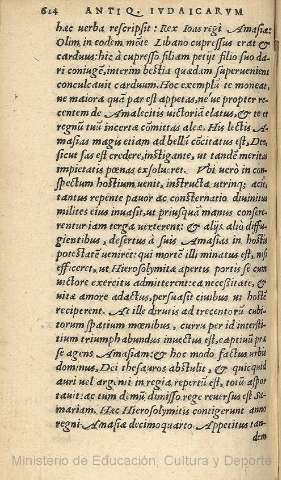 614 ANTIQ. IVDAICARVM
hæc verba rescripsit: Rex Ioas regi Amasiæ:
Olim in eodem mõte Libano cupressus erat &
carduus: hic à cupresso filiam petijt filio suo da-
ri coniugẽ, interim bestia quædam superueniens
conculcauit carduum. Hoc exemplũ te moneat,
ne maiora quàm par est appetas, ne ue propter re-
centem de Amalecitis victoriã elatus, & te et
regnũ tuũ incertæ cõmittas aleæ. His lectis A-
masias magis etiam ad bellũ cõcitatus est, Deo,
sicut fas est credere, instigante, ut tandẽ meritas
impietatis pœnas exsolueret. Vbi verò in con-
spectum hostium uenit, instructa utrinq; acie,
tantus repente pauor ac consternatio diuinitus
milites eius inuasit, ut priusquàm manus conser-
rentur iam terga verterent: & alijs aliò diffu-
gientibus, desertus à suis Amasias in hostis
potestatẽ veniret: qui mortẽ illi minatus est, nisi
efficeret, ut Hierosolymitæ apertis portis se cum
victore exercitu admitterent: ea necessitate, &
vitæ amore adactus, persuasit ciuibus ut hostẽ
reciperent. At ille dirutis ad trecentorũ cubi-
torum spatium mœnibus, curru per id intersti-
tium triumphabundus inuectus est, captiuũ præ
se agens Amasiam: & hoc modo factus vrbis
dominus, Dei thesauros abstulit, & quicquid
auri vel argenti in regia repertũ est, totũ aspor-
tauit: ac tum demũ dimisso rege reuersus est Sa-
mariam. Hæc Hierosolymitis contigerunt anno
regni Amasiæ decimoquarto. Appetitus tan-
dem
Ministerio de Educación, Cultura y Deporte